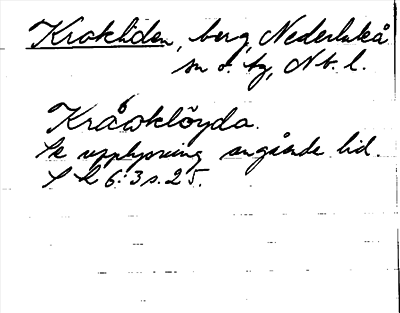 Krokliden, berg, Nederluleå
sn o. tg, Nb. l.
Kråwkłöyda.
Sk upplysning angående lid.
S k 6:3 s. 25.